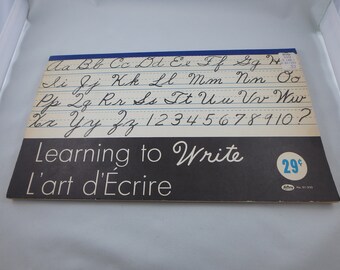 Aa Bb Cc Dd Ee Ff Gg H
Ii Jj Kk Ll Mm Nn Oo
Pp Qq Rr Ss Tt Uu Vv Ww
Xx Yy Zz 12345678910?
Learning to Write
L'art d'Écrire
29¢